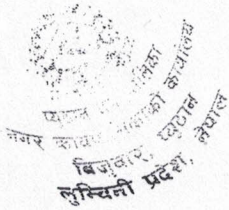 प्युठान नगरपालिका
नगर कार्यपालिकाको कार्यालय
बिजुवार, प्यूठान
लुम्बिनी प्रदेश, नेपाल